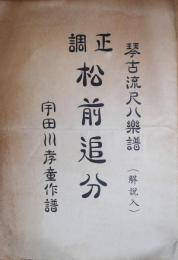 琴古流尺八樂譜
(解説入)
正調
松前追分
宇田川孝童作譜